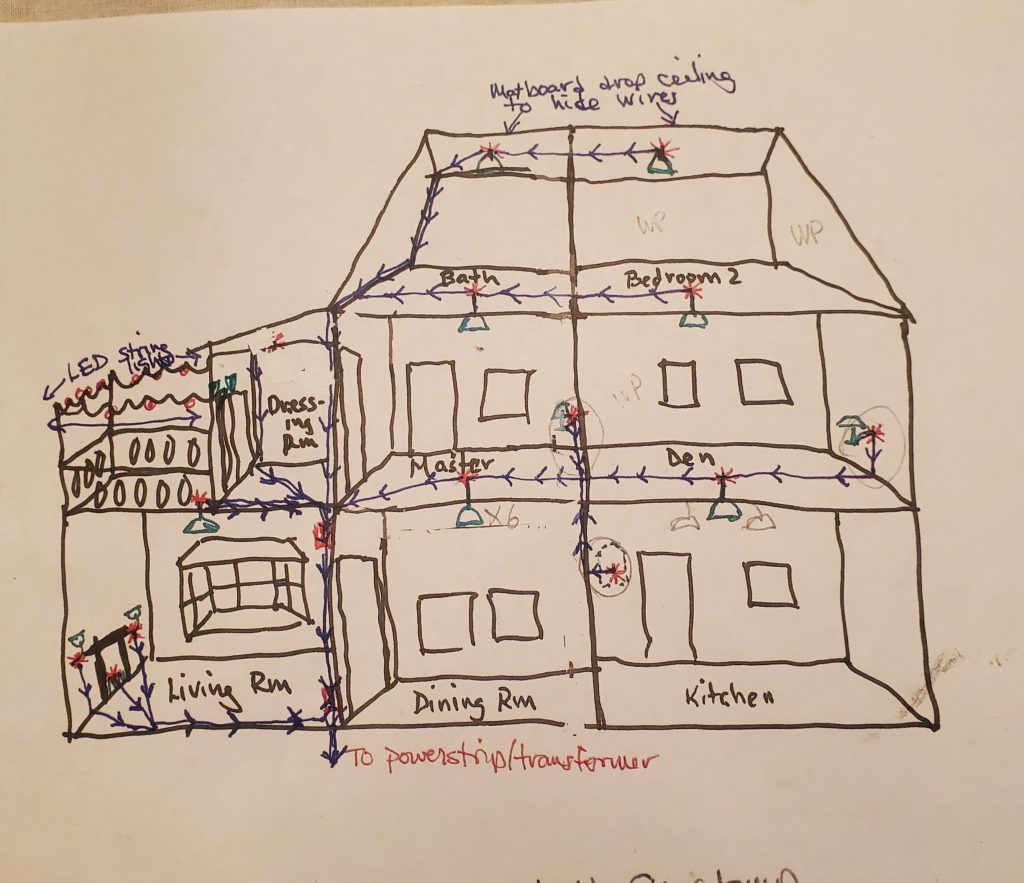 Matboard drop ceiling
to hide wires
WP
WP
Bath
Bedroom 2
LED string
lights
Dress-
ing
Rm
WP
Master
Den
X6
Living Rm
Dining Rm
Kitchen
To powerstrip/transformer